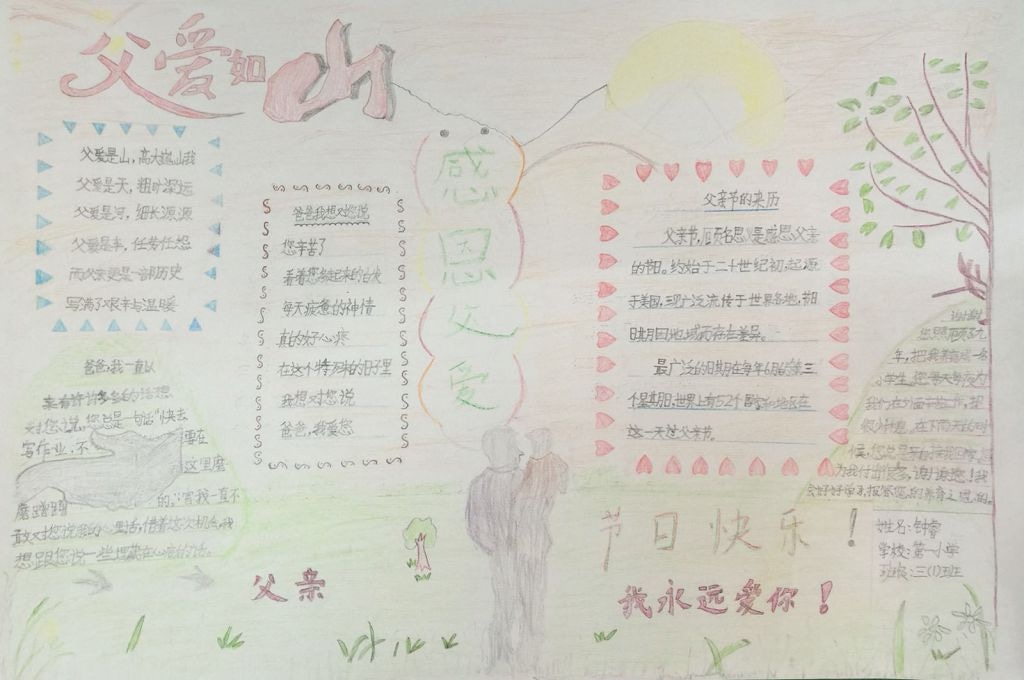 父爱如山
父爱是山，高大巍山我
父爱是天，粗旷深远
父爱是河，细长源源
父爱是车，任劳任怨
而父亲更是一部历史
写满了艰辛与温暖
爸爸我想对您说
您辛苦了
看着您多起来的白发
每天疲惫的神情
真的好心疼
在这个特殊的日子里
我想对您说
爸爸，我爱您
感恩父爱
父亲节的来历
父亲节，顾名思义是感恩父亲
的节日。约始于二十世纪初，起源
于美国，现广泛流传于世界各地，节日
日期因地域而存在差异。
最广泛的日期在每年6月的第三
个星期日，世界上有52个国家和地区在
这一天过父亲节。
爸爸，我一直以
来有许许多多的话想
对您说，您总是一句话“快去
写作业，不要在
这里磨
磨蹭蹭的，”害我一直不
敢对您说我的心里话，借着这次机会，我
想跟您说一些埋藏在心底的话。
谢谢
您照顾了九
年，把我养育成一名
小学生，您每天努力为
我们在外面辛苦工作，很
很少休息，在下雨天的时
候，您总是
为我付出很多，谢谢您！我
会好好学习，报答您的养育之恩的。
姓名：钟睿
学校：第一小学
班级：三(1)班
节日快乐！
父亲
我永远爱你！